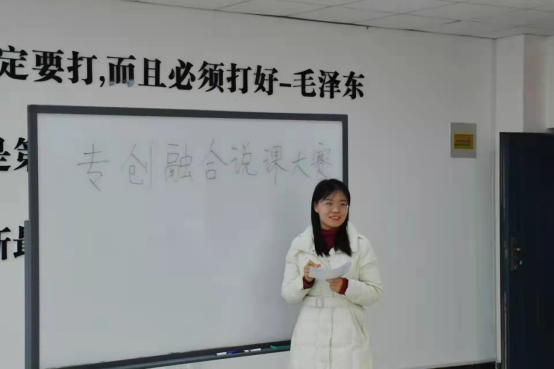 定要打,而且必须打好-毛泽东
专创融合说课大赛
是第
新最